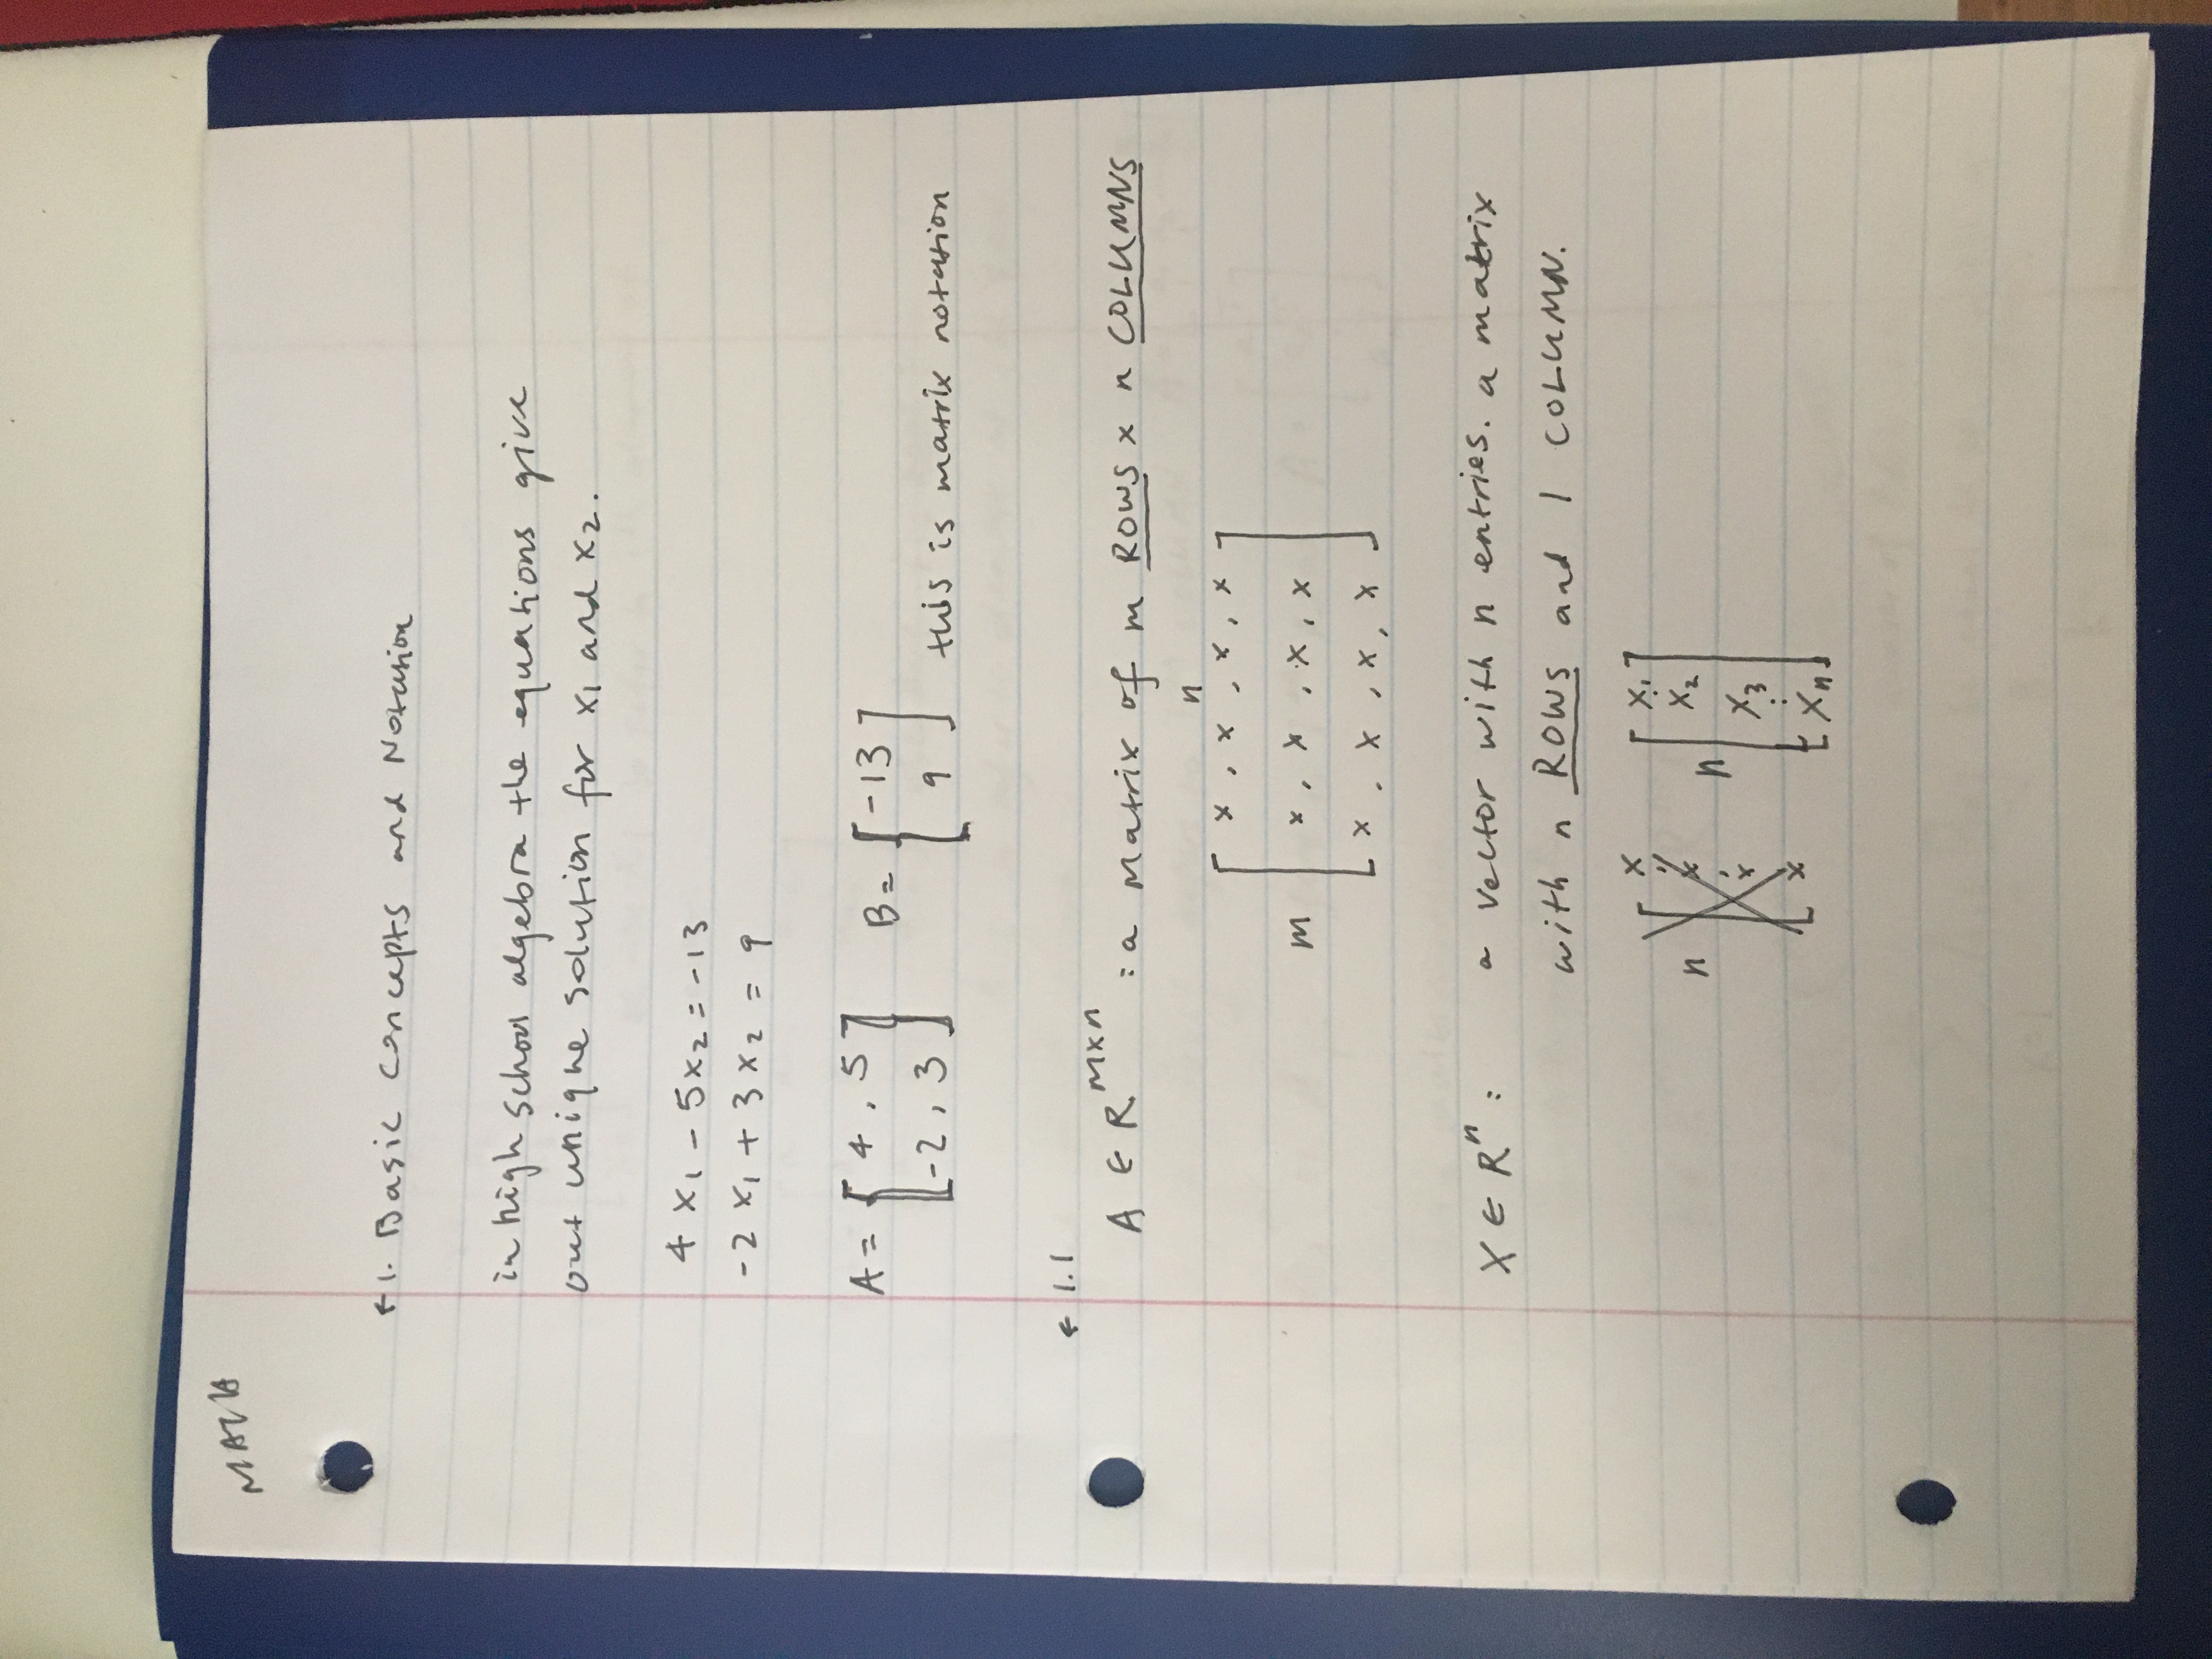 MATH
← 1. Basic Concepts and Notation
in high school algebra the equations give
out unique solution for x₁ and x₂.
4 x₁ - 5x₂ = -13
-2 x₁ + 3 x₂ = 9
A = [ 4 , 5 ] B = [ -13 ]
[ -2 , 3 ] [ 9 ] this is matrix notation
← 1.1
A ∈ R^mxn : a matrix of m ROWS x n COLUMNS
n
[ x , x , x , x ]
m [ x , x , x , x ]
[ x , x , x , x ]
X ∈ Rⁿ : a vector with n entries. a matrix
with n ROWS and 1 COLUMN.
[ x [ x₁ ]
n [ x n [ x₂ ]
[ x [ x₃ ]
⋮
[ x [ xₙ ]